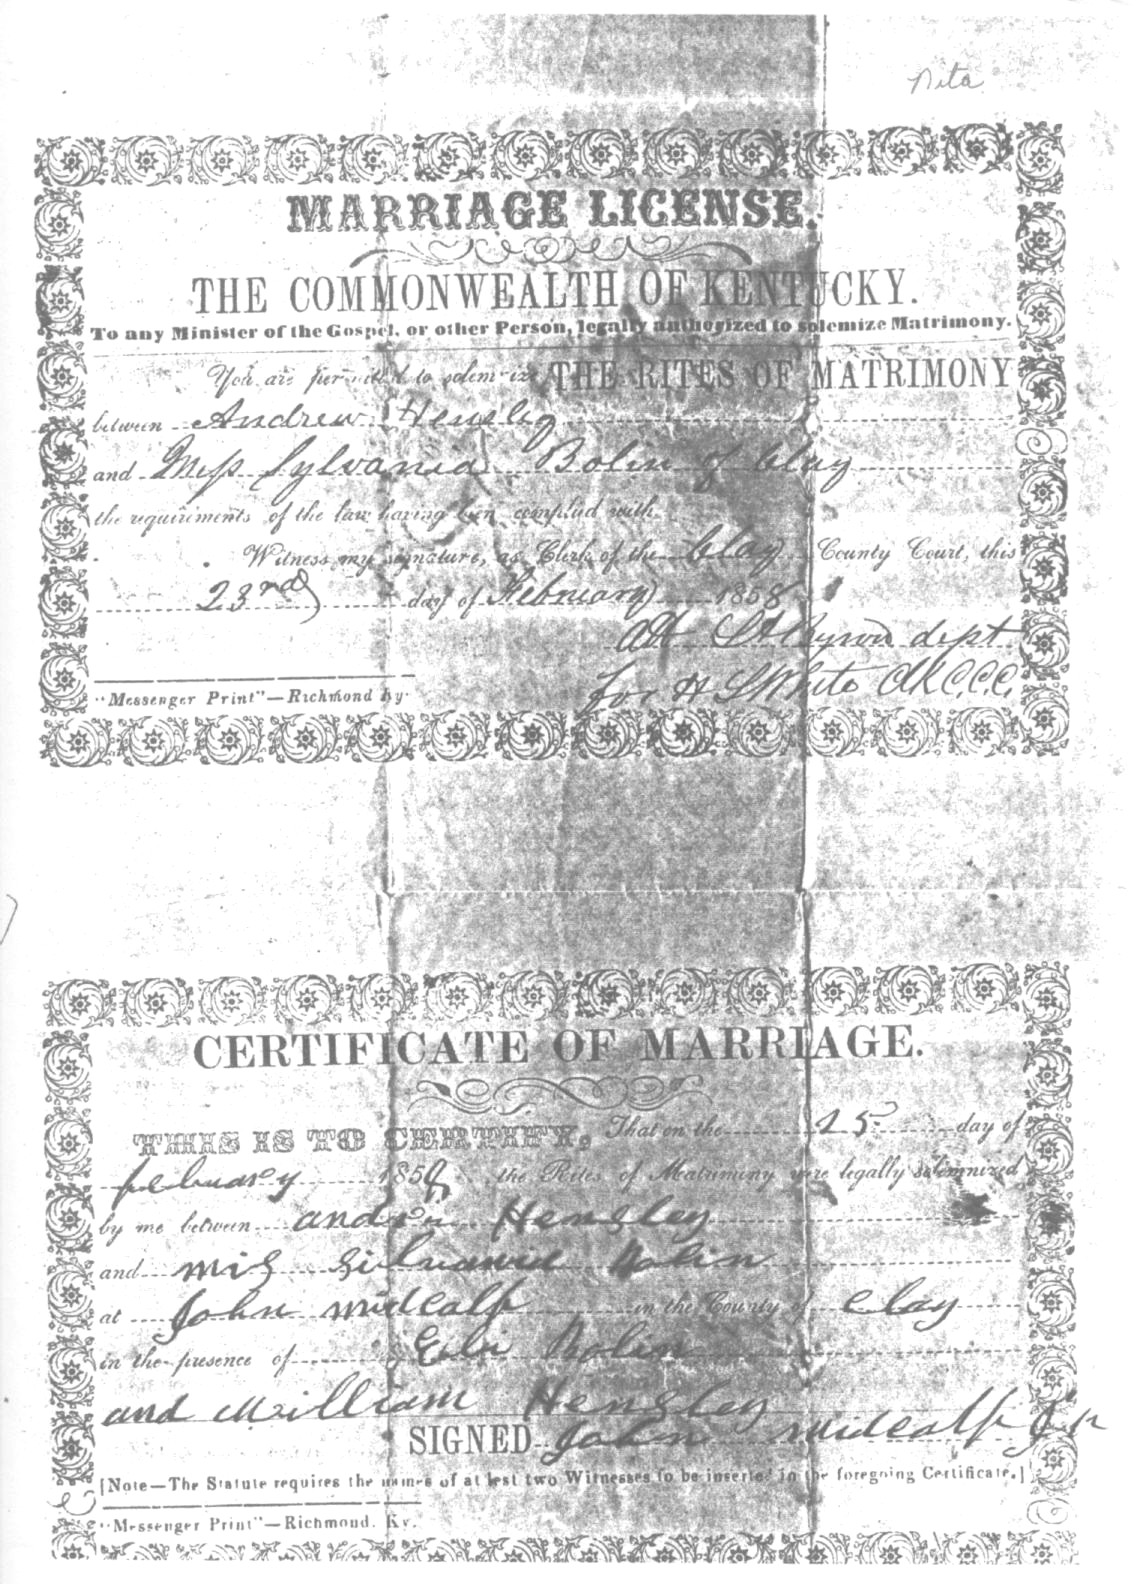 Nita
MARRIAGE LICENSE.
THE COMMONWEALTH OF KENTUCKY.
To any Minister of the Gospel, or other Person, legally authorized to solemize Matrimony.
You are permitted to solemnize THE RITES OF MATRIMONY
between Andrew Hensley
and Miss Sylvania Bolin of Clay
the requirements of the law having been complied with.
Witness my signature, as Clerk of the Clay County Court, this
23rd day of February 1858
Att dept
for H L White Clk C.C.C.
"Messenger Print"—Richmond Ky.
CERTIFICATE OF MARRIAGE.
THIS IS TO CERTIFY, That on the 25 day of
february 1858 the Rites of Matrimony were legally solemnized
by me between Hensley
and mis Bolin
at John midcalf in the County of clay
in the presence of Bolin
and William Hensley
SIGNED John midcalf Jr
[Note—The Statute requires the names of at lest two Witnesses to be inserted in the foregoing Certificate.]
"Messenger Print"—Richmond, Ky.